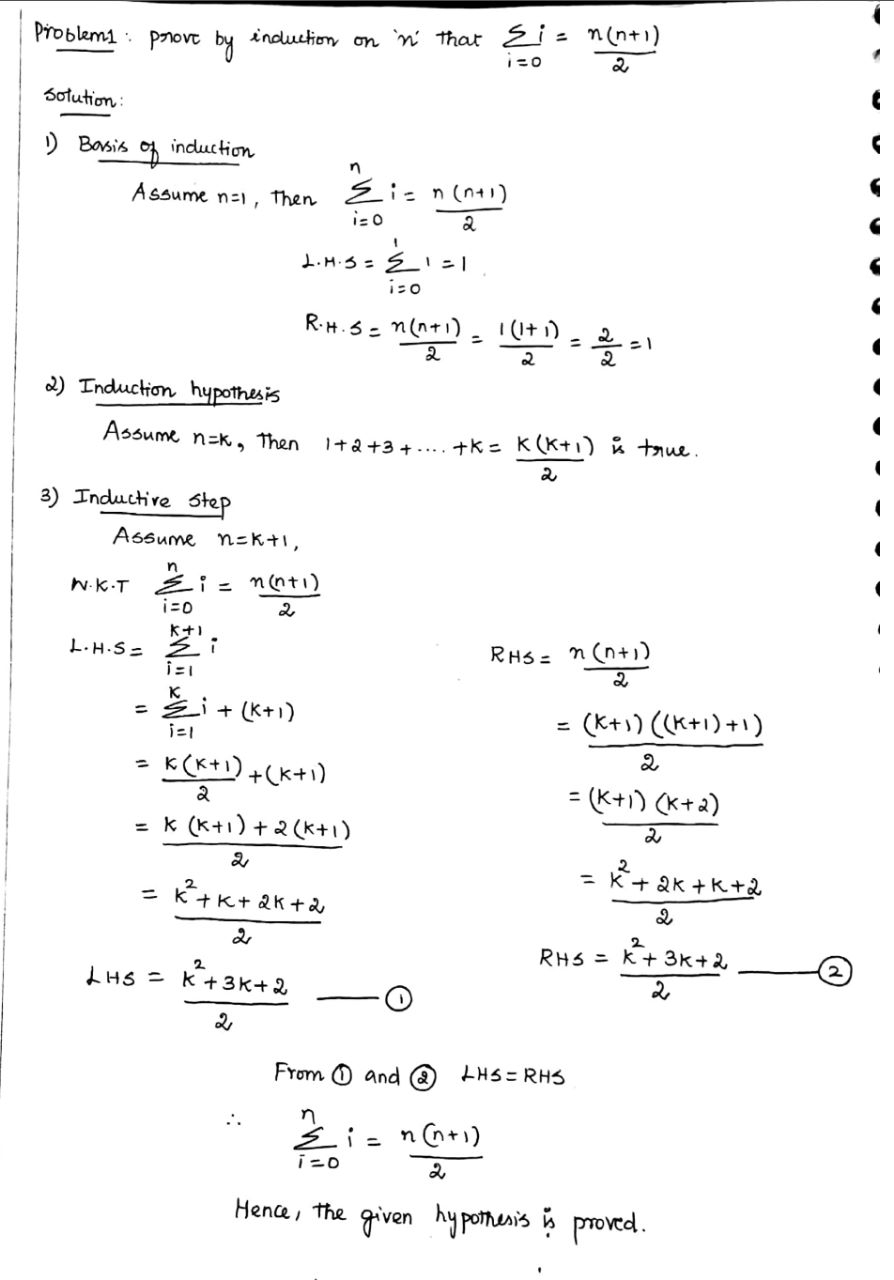 Problem1 : prove by induction on 'n' that Σ_{i=0} i = n(n+1)/2
Solution:
1) Basis of induction
Assume n=1, Then Σ_{i=0}^{n} i = n(n+1)/2
L.H.S = Σ_{i=0}^{1} 1 = 1
R.H.S = n(n+1)/2 = 1(1+1)/2 = 2/2 = 1
2) Induction hypothesis
Assume n=K, Then 1+2+3+....+K = K(K+1)/2 is true.
3) Inductive step
Assume n=K+1,
W.K.T Σ_{i=0}^{n} i = n(n+1)/2
L.H.S = Σ_{i=1}^{K+1} i
= Σ_{i=1}^{K} i + (K+1)
= K(K+1)/2 + (K+1)
= (K(K+1)+2(K+1))/2
= (K²+K+2K+2)/2
LHS = (K²+3K+2)/2 —— ①
RHS = n(n+1)/2
= (K+1)((K+1)+1)/2
= (K+1)(K+2)/2
= (K²+2K+K+2)/2
RHS = (K²+3K+2)/2 —— ②
From ① and ② LHS=RHS
∴ Σ_{i=0}^{n} i = n(n+1)/2
Hence, the given hypothesis is proved.